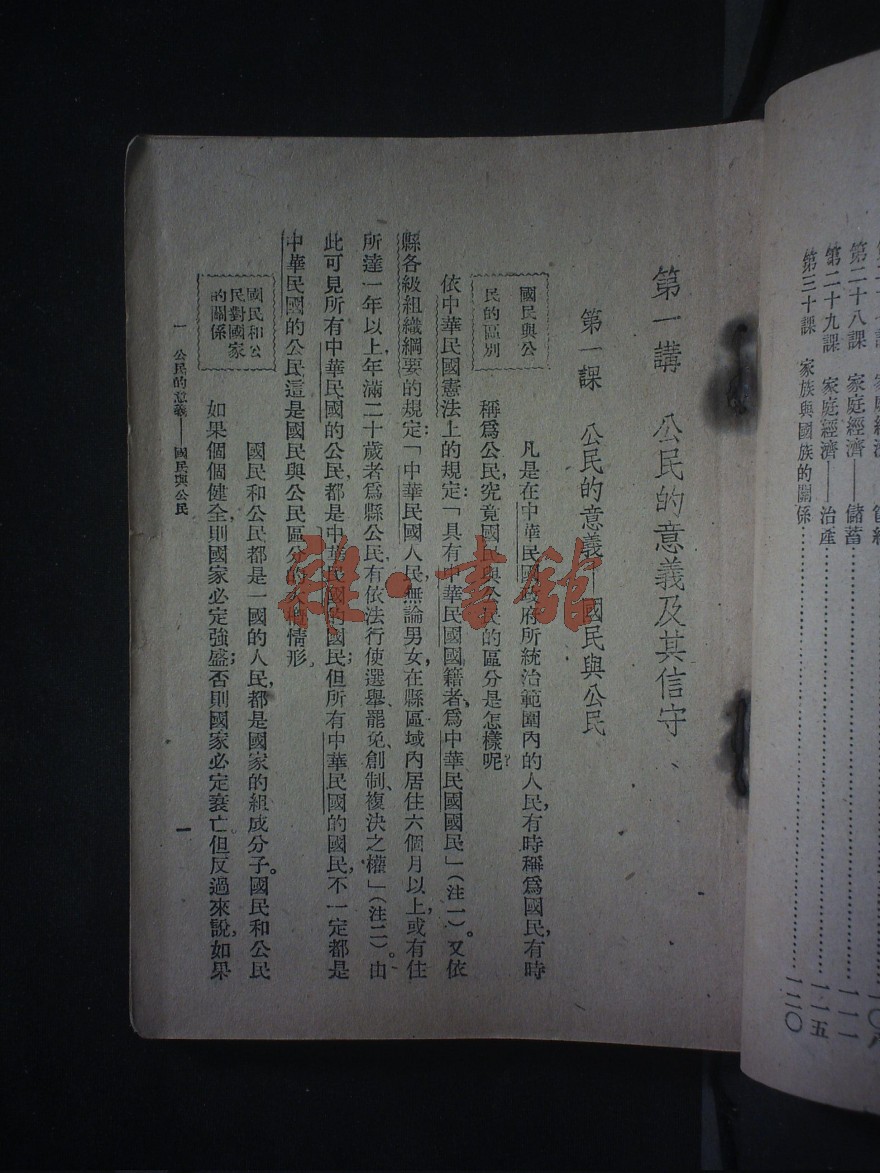 第二十八課 家庭經濟——儲蓄……一一一
第二十九課 家庭經濟——治產……一一五
第三十課 家族與國族的關係……一二〇
第一講 公民的意義及其信守
第一課 公民的意義——國民與公民
國民與公
民的區別
凡是在中華民國政府所統治範圍內的人民，有時稱爲國民，有時
稱爲公民，究竟國民與公民的區分是怎樣呢？
依中華民國憲法上的規定：「具有中華民國國籍者，爲中華民國國民」（注一）。又依
縣各級組織綱要的規定：「中華民國人民，無論男女，在縣區域內居住六個月以上，或有住
所達一年以上，年滿二十歲者爲縣公民，有依法行使選舉、罷免、創制、複決之權」（注二）。由
此可見所有中華民國的公民，都是中華民國的國民；但所有中華民國的國民，不一定都是
中華民國的公民，這是國民與公民區分的情形。
國民和公
民對國家
的關係
國民和公民都是一國的人民，都是國家的組成分子。國民和公民
如果個個健全，則國家必定強盛；否則國家必定衰亡。但反過來說，如果
一 公民的意義——國民與公民
一
雜·書館